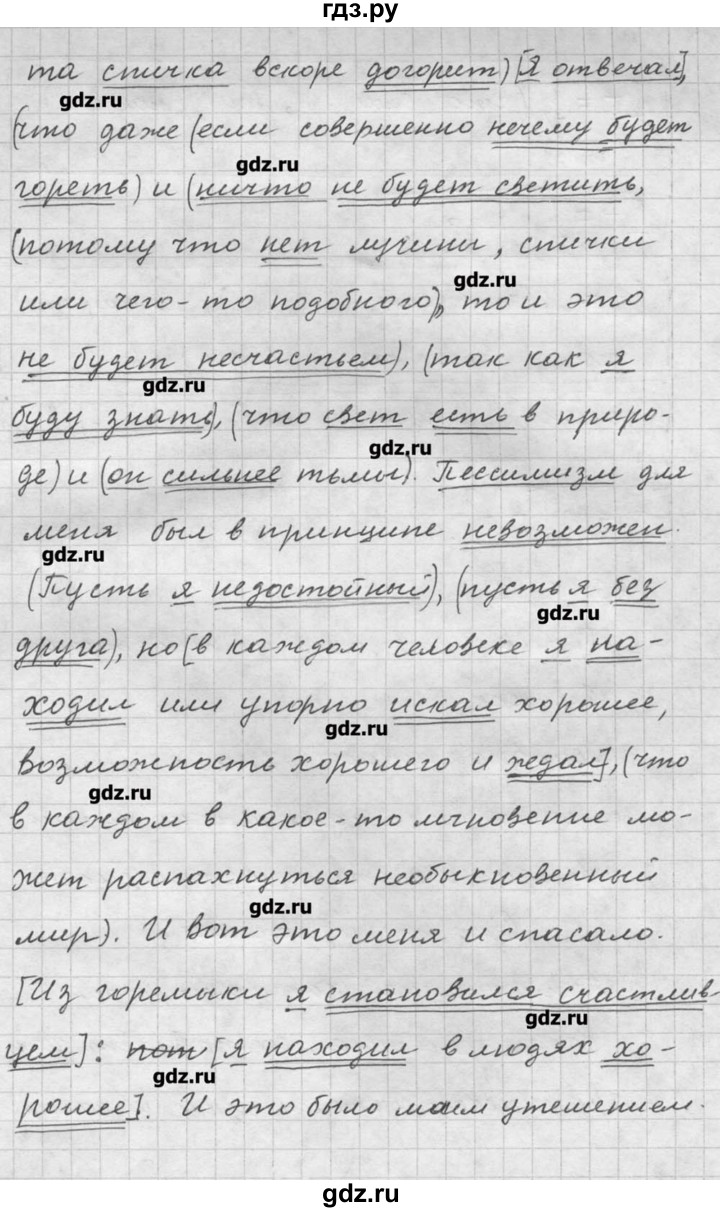 гдз.ру
та спичка вскоре догорит) [я отвечал],
gdz.ru
(что даже (если совершенно нечему будет
gdz.ru
гореть) и (ничто не будет светить,
(потому что нет лучины, спички
gdz.ru
или чего-то подобного), то и это
не будет несчастьем), (так как я
gdz.ru
буду знать), (что свет есть в приро-
gdz.ru
де) и (он сильнее тьмы). Пессимизм для
меня был в принципе невозможен.
gdz.ru
(Пусть я недостойный), (пусть я без
gdz.ru
друга), но [в каждом человеке я на-
ходил или упорно искал хорошее,
gdz.ru
возможность хорошего и ждал], (что
gdz.ru
в каждом в какое-то мгновение мо-
жет распахнуться необыкновенный
gdz.ru
мир). И вот это меня и спасало.
[Из горемыки я становился счастлив-
gdz.ru
цем]: [я находил в людях хо-
gdz.ru
рошее]. И это было моим утешением.
gdz.ru